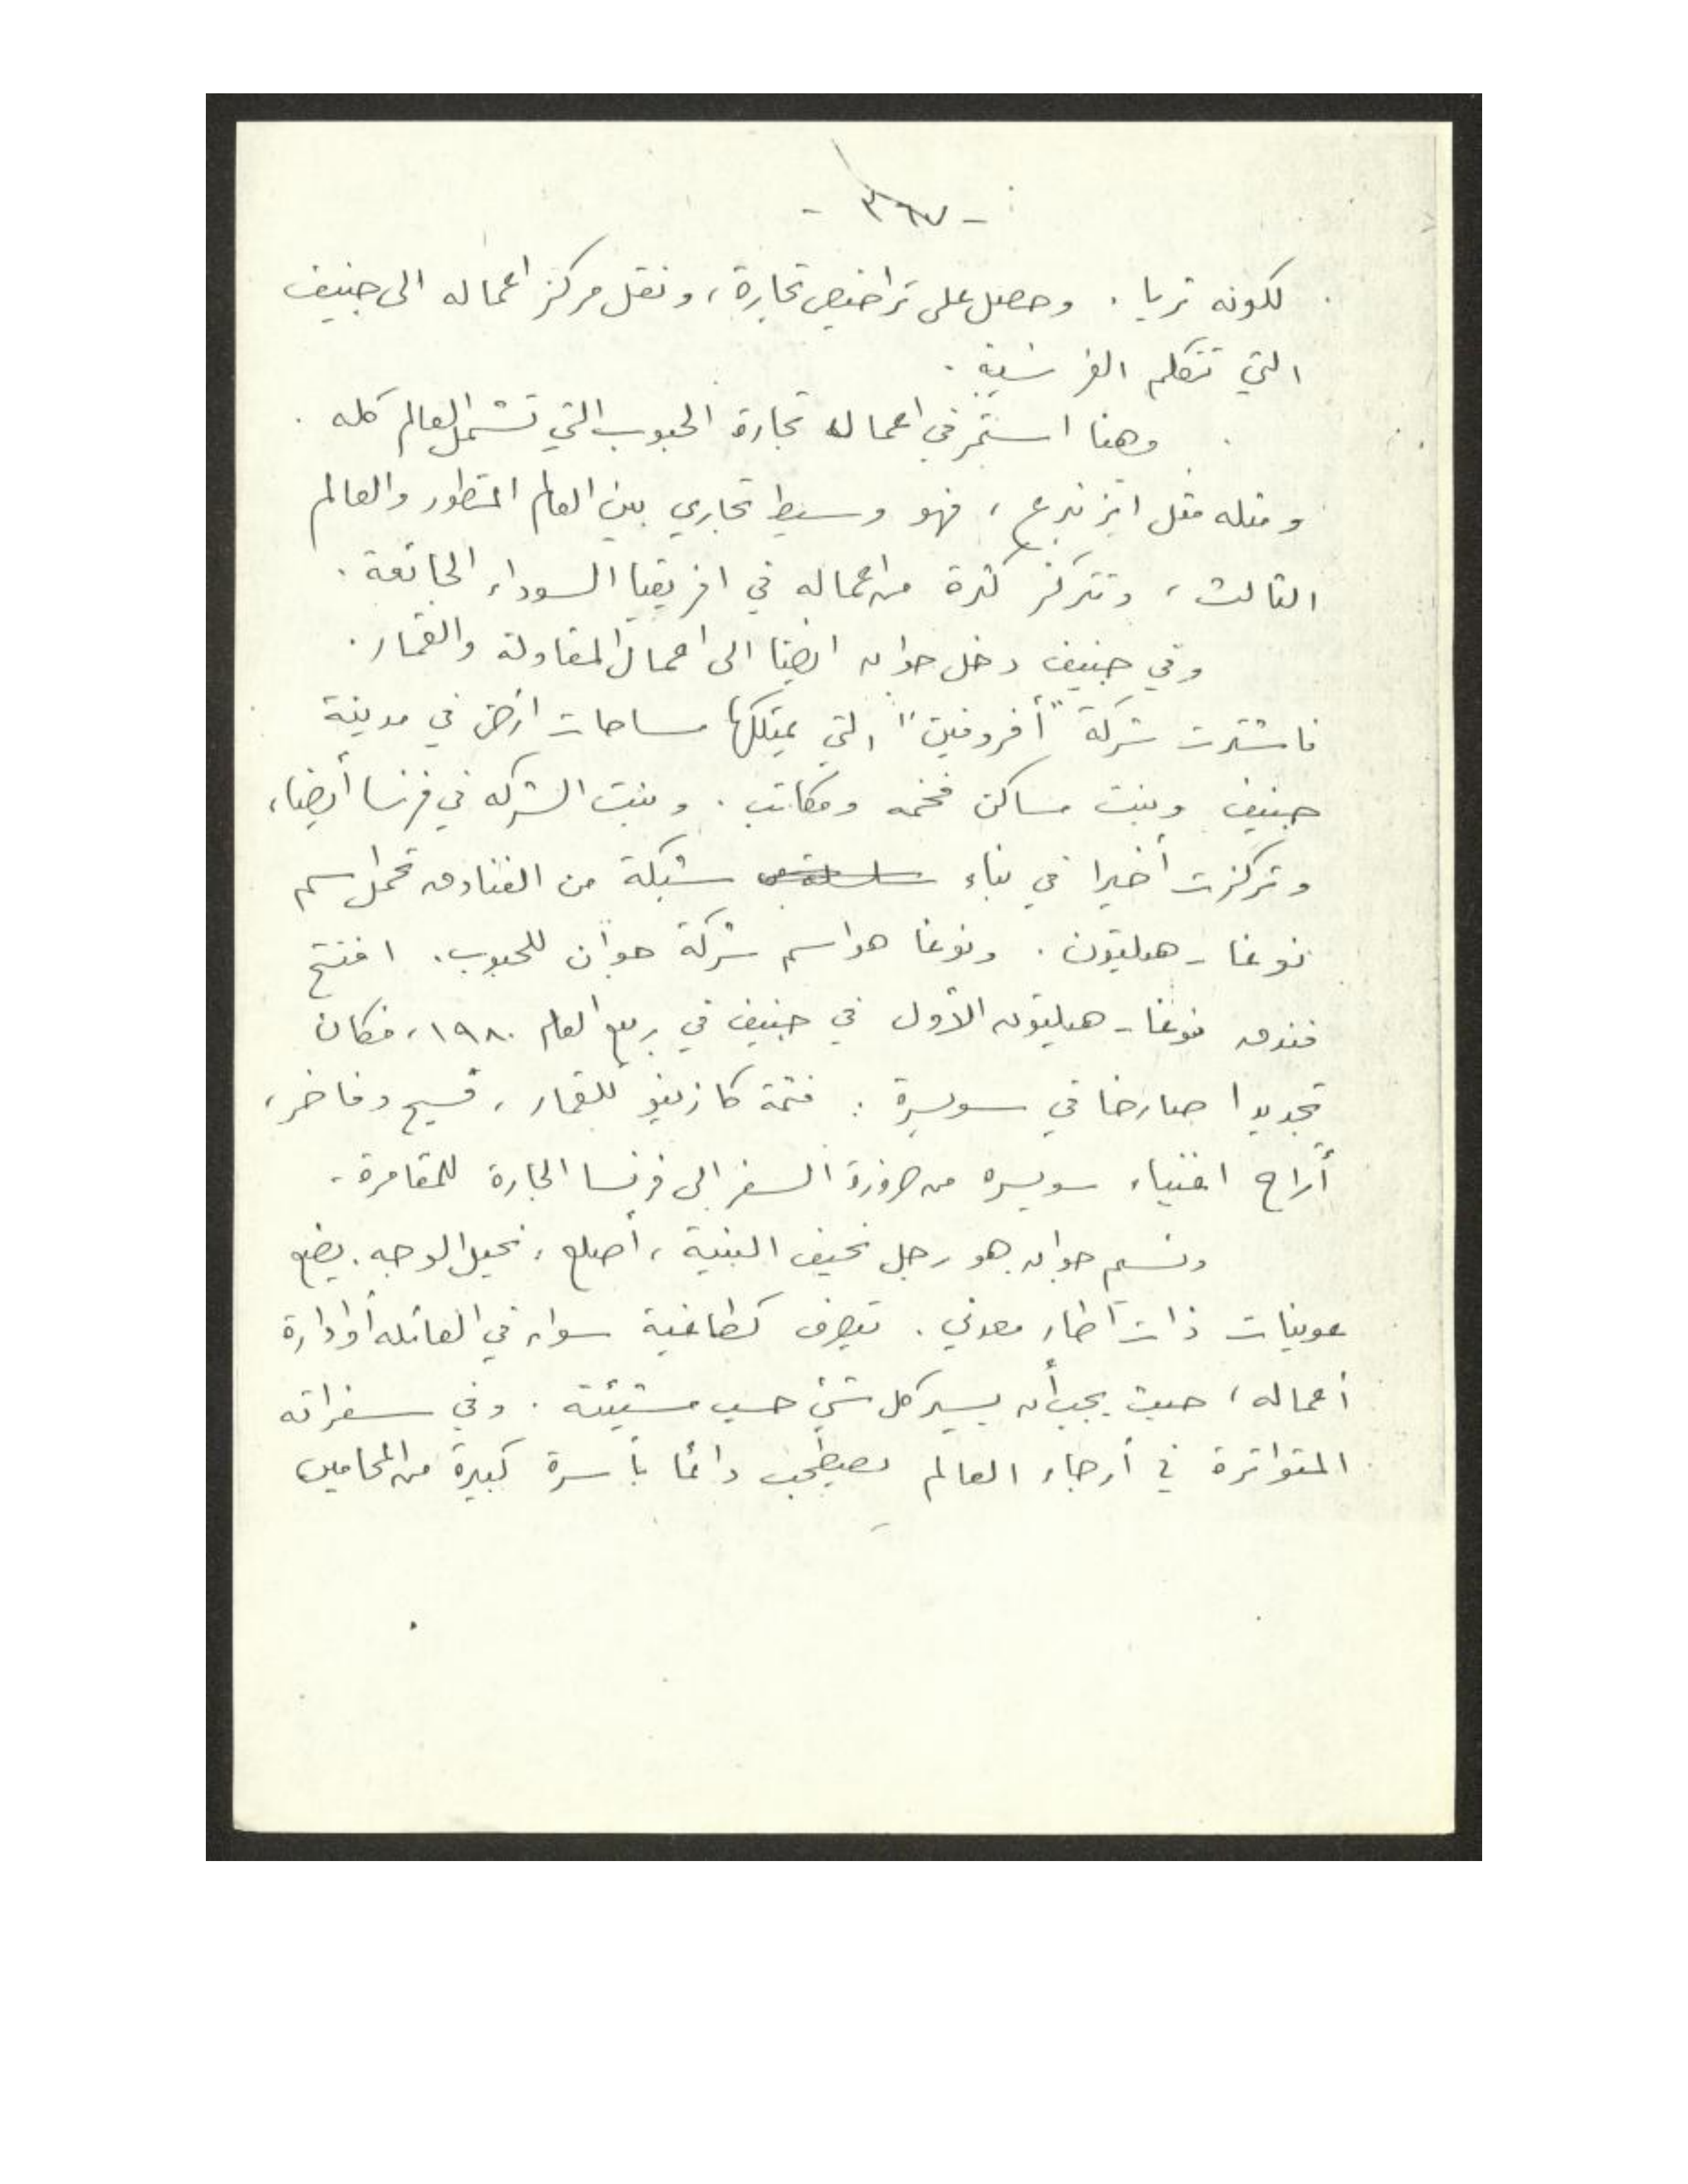 - ٣٦٧ -
لكونه ثريا . وحصل على تراخيص تجارة ، ونقل مركز اعماله الى جنيف
التي تتكلم الفرنسية .
وهنا استمر في اعماله تجارة الحبوب التي تشمل العالم كله .
ومثله مثل ايزنبرغ ، فهو وسيط تجاري بين العالم المتطور والعالم
الثالث ، وتتركز كثرة من اعماله في افريقيا السوداء الجائعة .
وفي جنيف دخل جوان ايضا الى اعمال المقاولة والقمار .
فاشترت شركة "أفروفين" التي يمتلكها مساحات ارض في مدينة
جنيف وبنت مساكن فخمه ومكاتب . وبنت الشركه في فرنسا أيضا ،
وتركزت أخيرا في بناء شبكة من الفنادق تحمل اسم
نوغا - هيلتون . ونوغا هو اسم شركة جوان للحبوب . افتتح
فندق نوغا - هيلتون الأول في جنيف في ربيع العام ١٩٨٠ ، فكان
تجديدا صارخا في سويسرة : فثمة كازينو للقمار ، فسيح وفاخر ،
أراح اغنياء سويسره من ضرورة السفر الى فرنسا الجارة للمقامرة .
ونسيم جوان هو رجل نحيف البنية ، أصلع ، نحيل الوجه . يضع
عوينات ذات اطار معدني . تصرف كطاغية سواء في العائله أو ادارة
أعماله ، حيث يجب أن يسير كل شيء حسب مشيئته . وفي سفراته
المتواترة في أرجاء العالم يصطحب دائما بأسرة كبيرة من المحامين